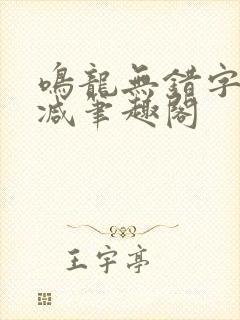 鳴龍無錯字
減筆趣閣
王宇亭